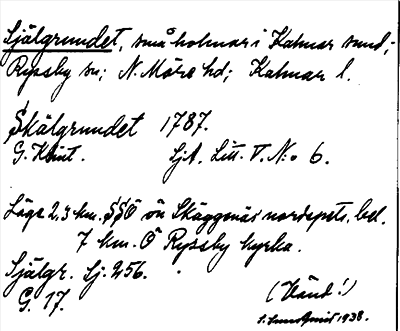 Själgrundet, små holmar i Kalmar sund;
Ryssby sn; N. Möre hd; Kalmar l.
Skälgrundet 1787.
G. Klint. Sjk. Litt. V. No 6.
Läge 2,3 km. SSÖ ön Skäggenäs nordspets, bel.
7 km. Ö Ryssby kyrka.
Själgr. Sj. 256.
G. 17.
(Vänd!)
1938.